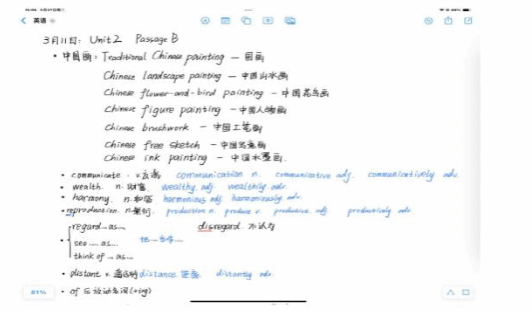 英语
3月11日: Unit2 Passage B
• 中国画: Traditional Chinese painting — 国画
Chinese landscape painting — 中国山水画
Chinese flower-and-bird painting — 中国花鸟画
Chinese figure painting — 中国人物画
Chinese brushwork — 中国工笔画
Chinese free sketch — 中国写意画
Chinese ink painting — 中国水墨画.
• communicate. v. communication n. communicative adj. communicatively adv.
• wealth. n. 财富 wealthy. adj. wealthily adv.
• harmony. n. 和谐 harmonious adj. harmoniously adv.
• reproduction. n. production n. produce v. productive adj. productively adv
regard...as... disregard. 不
see ... as...
think of ... as...
• distant distance distantly adv.
• of 后 放动名词(+ing)
81%